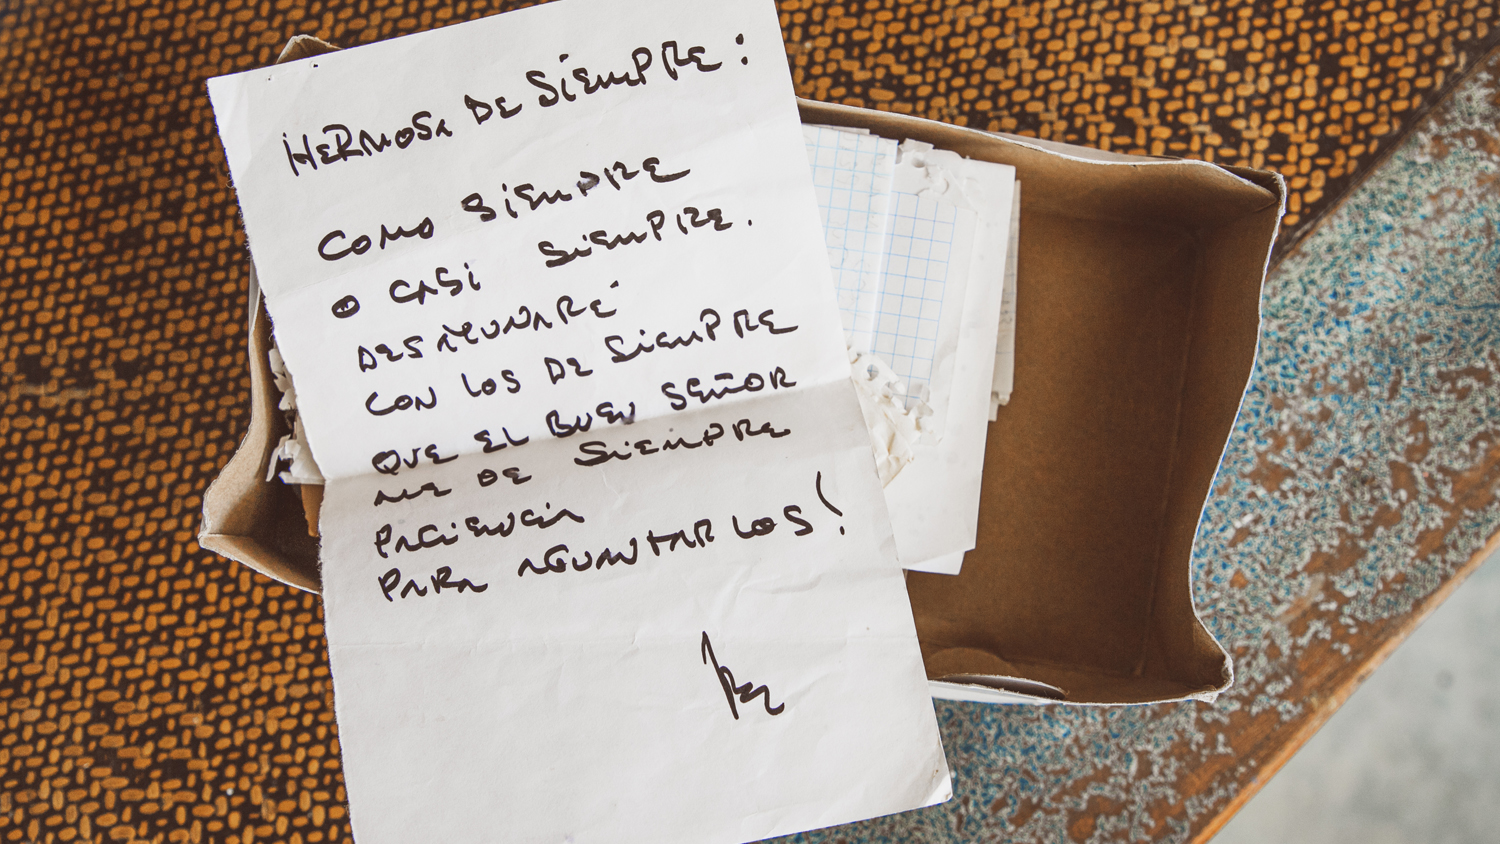 HERMOSA DE SIEMPRE:
COMO SIEMPRE
O CASI SIEMPRE.
DESAYUNARÉ
CON LOS DE SIEMPRE
QUE EL BUEN SEÑOR
ME DE SIEMPRE
PACIENCIA
PARA AGUANTARLOS!